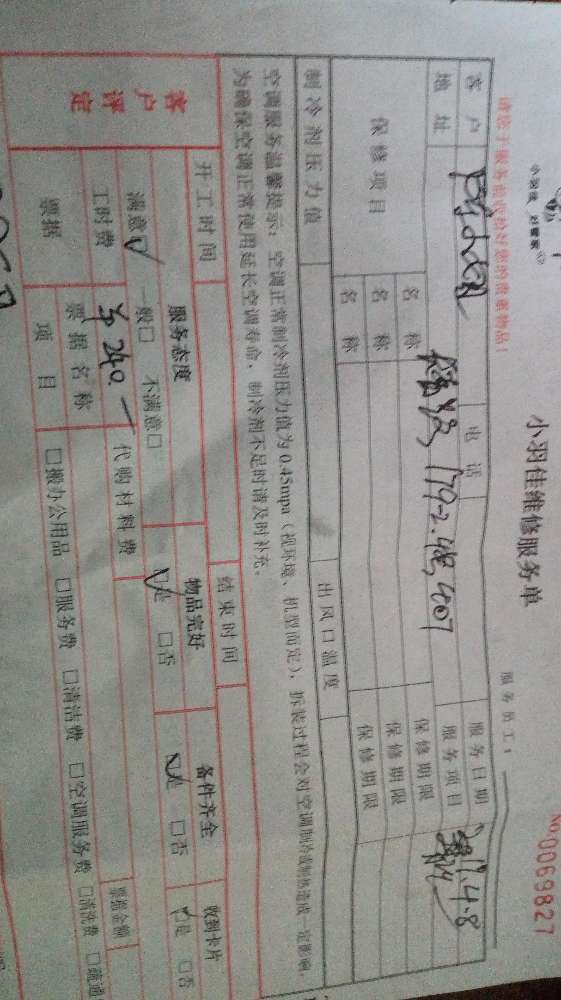 小羽佳维修服务单
No 0069827
请您于服务前收拾好您的贵重物品!
服务员工:
客户
电话
服务日期
4.8
地址
179-2.
407
服务项目
保修项目
名称
保修期限
名称
保修期限
名称
保修期限
制冷剂压力值
出风口温度
空调服务温馨提示: 空调正常制冷剂压力值为0.45mpa(视环境、机型而定), 拆装过程会对空调制冷或制热造成一定影响,
为确保空调正常使用延长空调寿命, 制冷剂不足时请及时补充。
客户评定
开工时间
结束时间
服务态度
物品完好
备件齐全
收到卡片
满意☑ 一般□ 不满意□
☑是 □否
☑是 □否
☑是 □否
工时费
240.一
代购材料费
票据
票据名称
票据金额
项目
□搬办公用品 □服务费 □清洁费 □空调服务费 □清洗费 □疏通